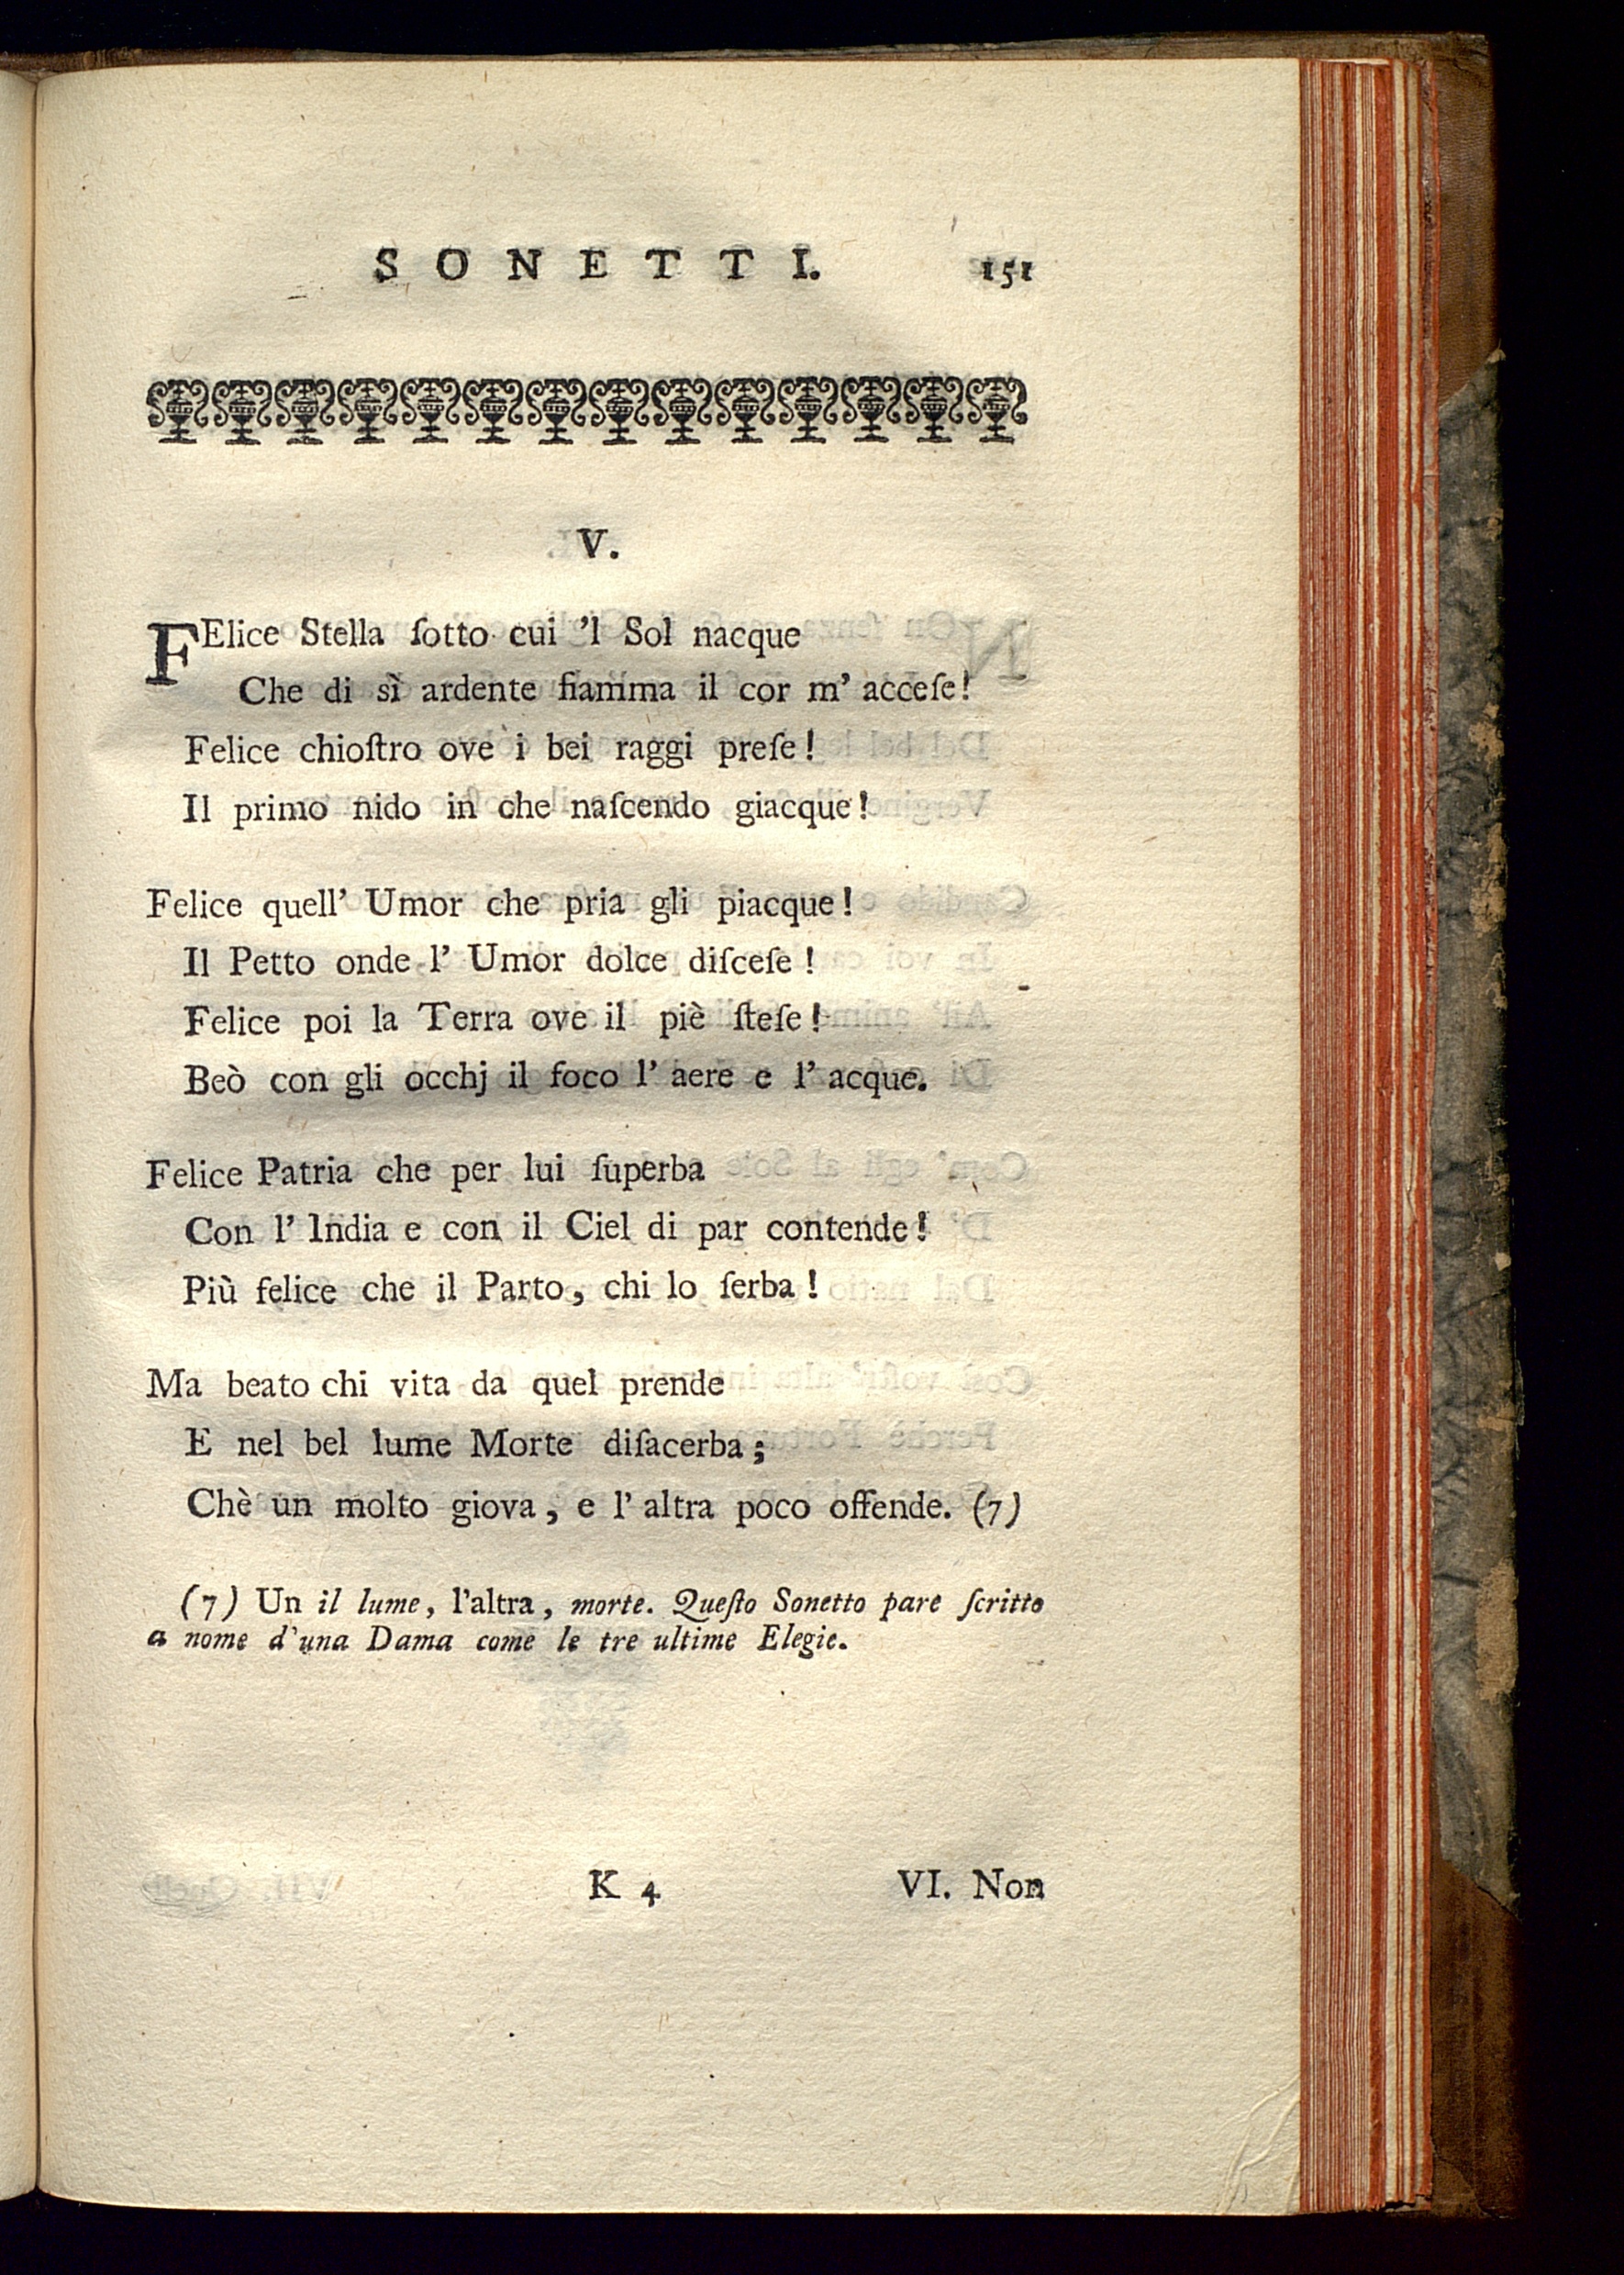 SONETTI. 151
V.
FElice Stella ſotto cui 'l Sol nacque
Che di sì ardente fiamma il cor m' acceſe!
Felice chioſtro ove i bei raggi preſe!
Il primo nido in che naſcendo giacque!
Felice quell' Umor che pria gli piacque!
Il Petto onde l' Umor dolce diſceſe!
Felice poi la Terra ove il piè ſteſe!
Beò con gli occhj il foco l' aere e l' acque.
Felice Patria che per lui ſuperba
Con l' India e con il Ciel di par contende!
Più felice che il Parto, chi lo ſerba!
Ma beato chi vita da quel prende
E nel bel lume Morte diſacerba;
Chè un molto giova, e l' altra poco offende. (7)
(7) Un il lume, l'altra, morte. Queſto Sonetto pare ſcritto
a nome d'una Dama come le tre ultime Elegie.
K 4 VI. Non